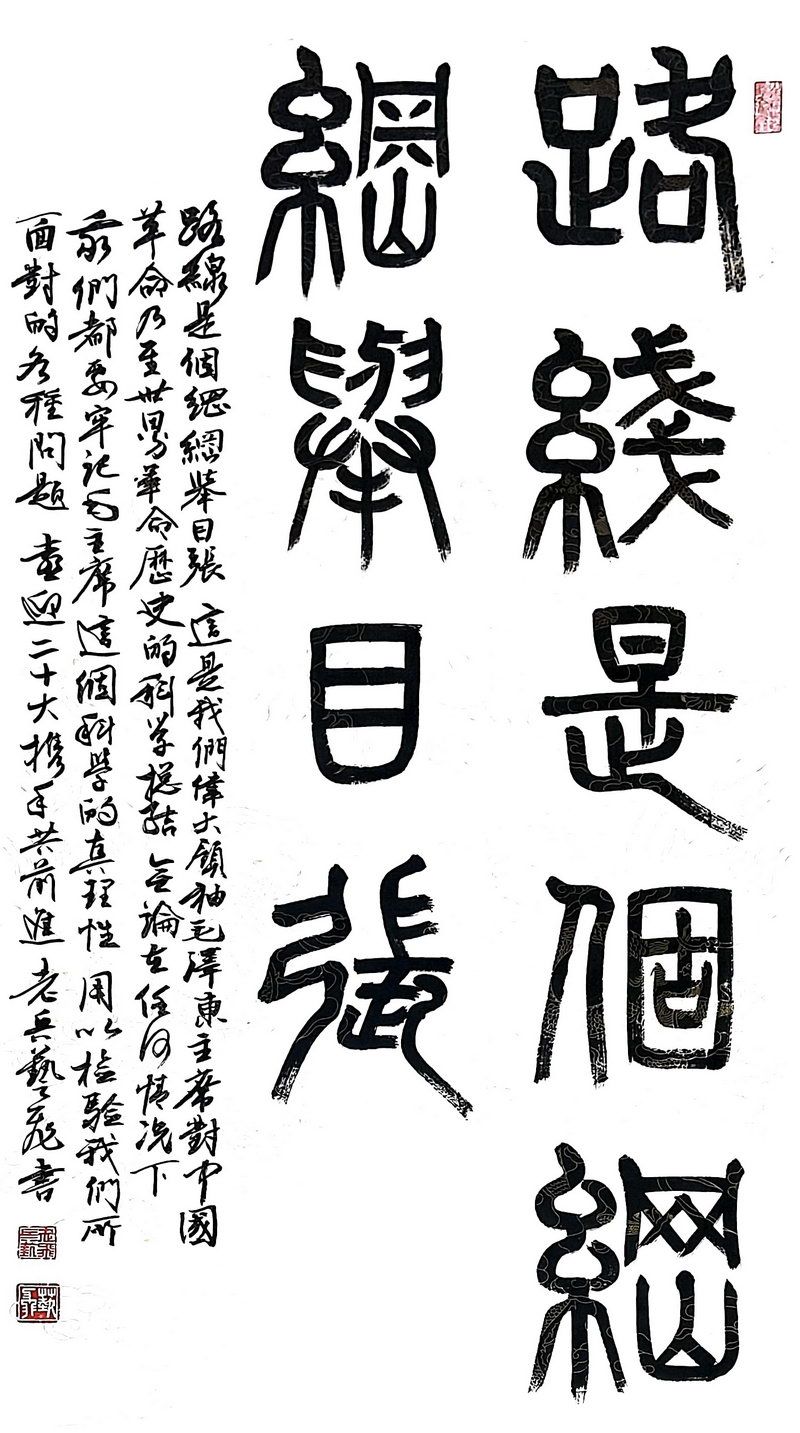 路綫是個綱
綱舉目張
路線是個綱綱舉目張 這是我們偉大領袖毛澤東主席對中國
革命乃至世界革命歷史的科学總結 無論在任何情况下
我們都要牢記毛主席這個科學的真理性 用以检驗我們所
面對的各種问題 喜迎二十大携手共前進 老兵藝飛書